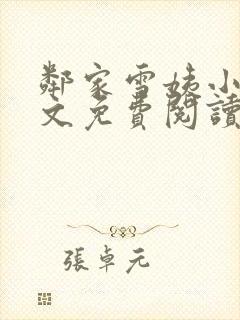 鄰家雪姨小
文免費閱讀
張卓元